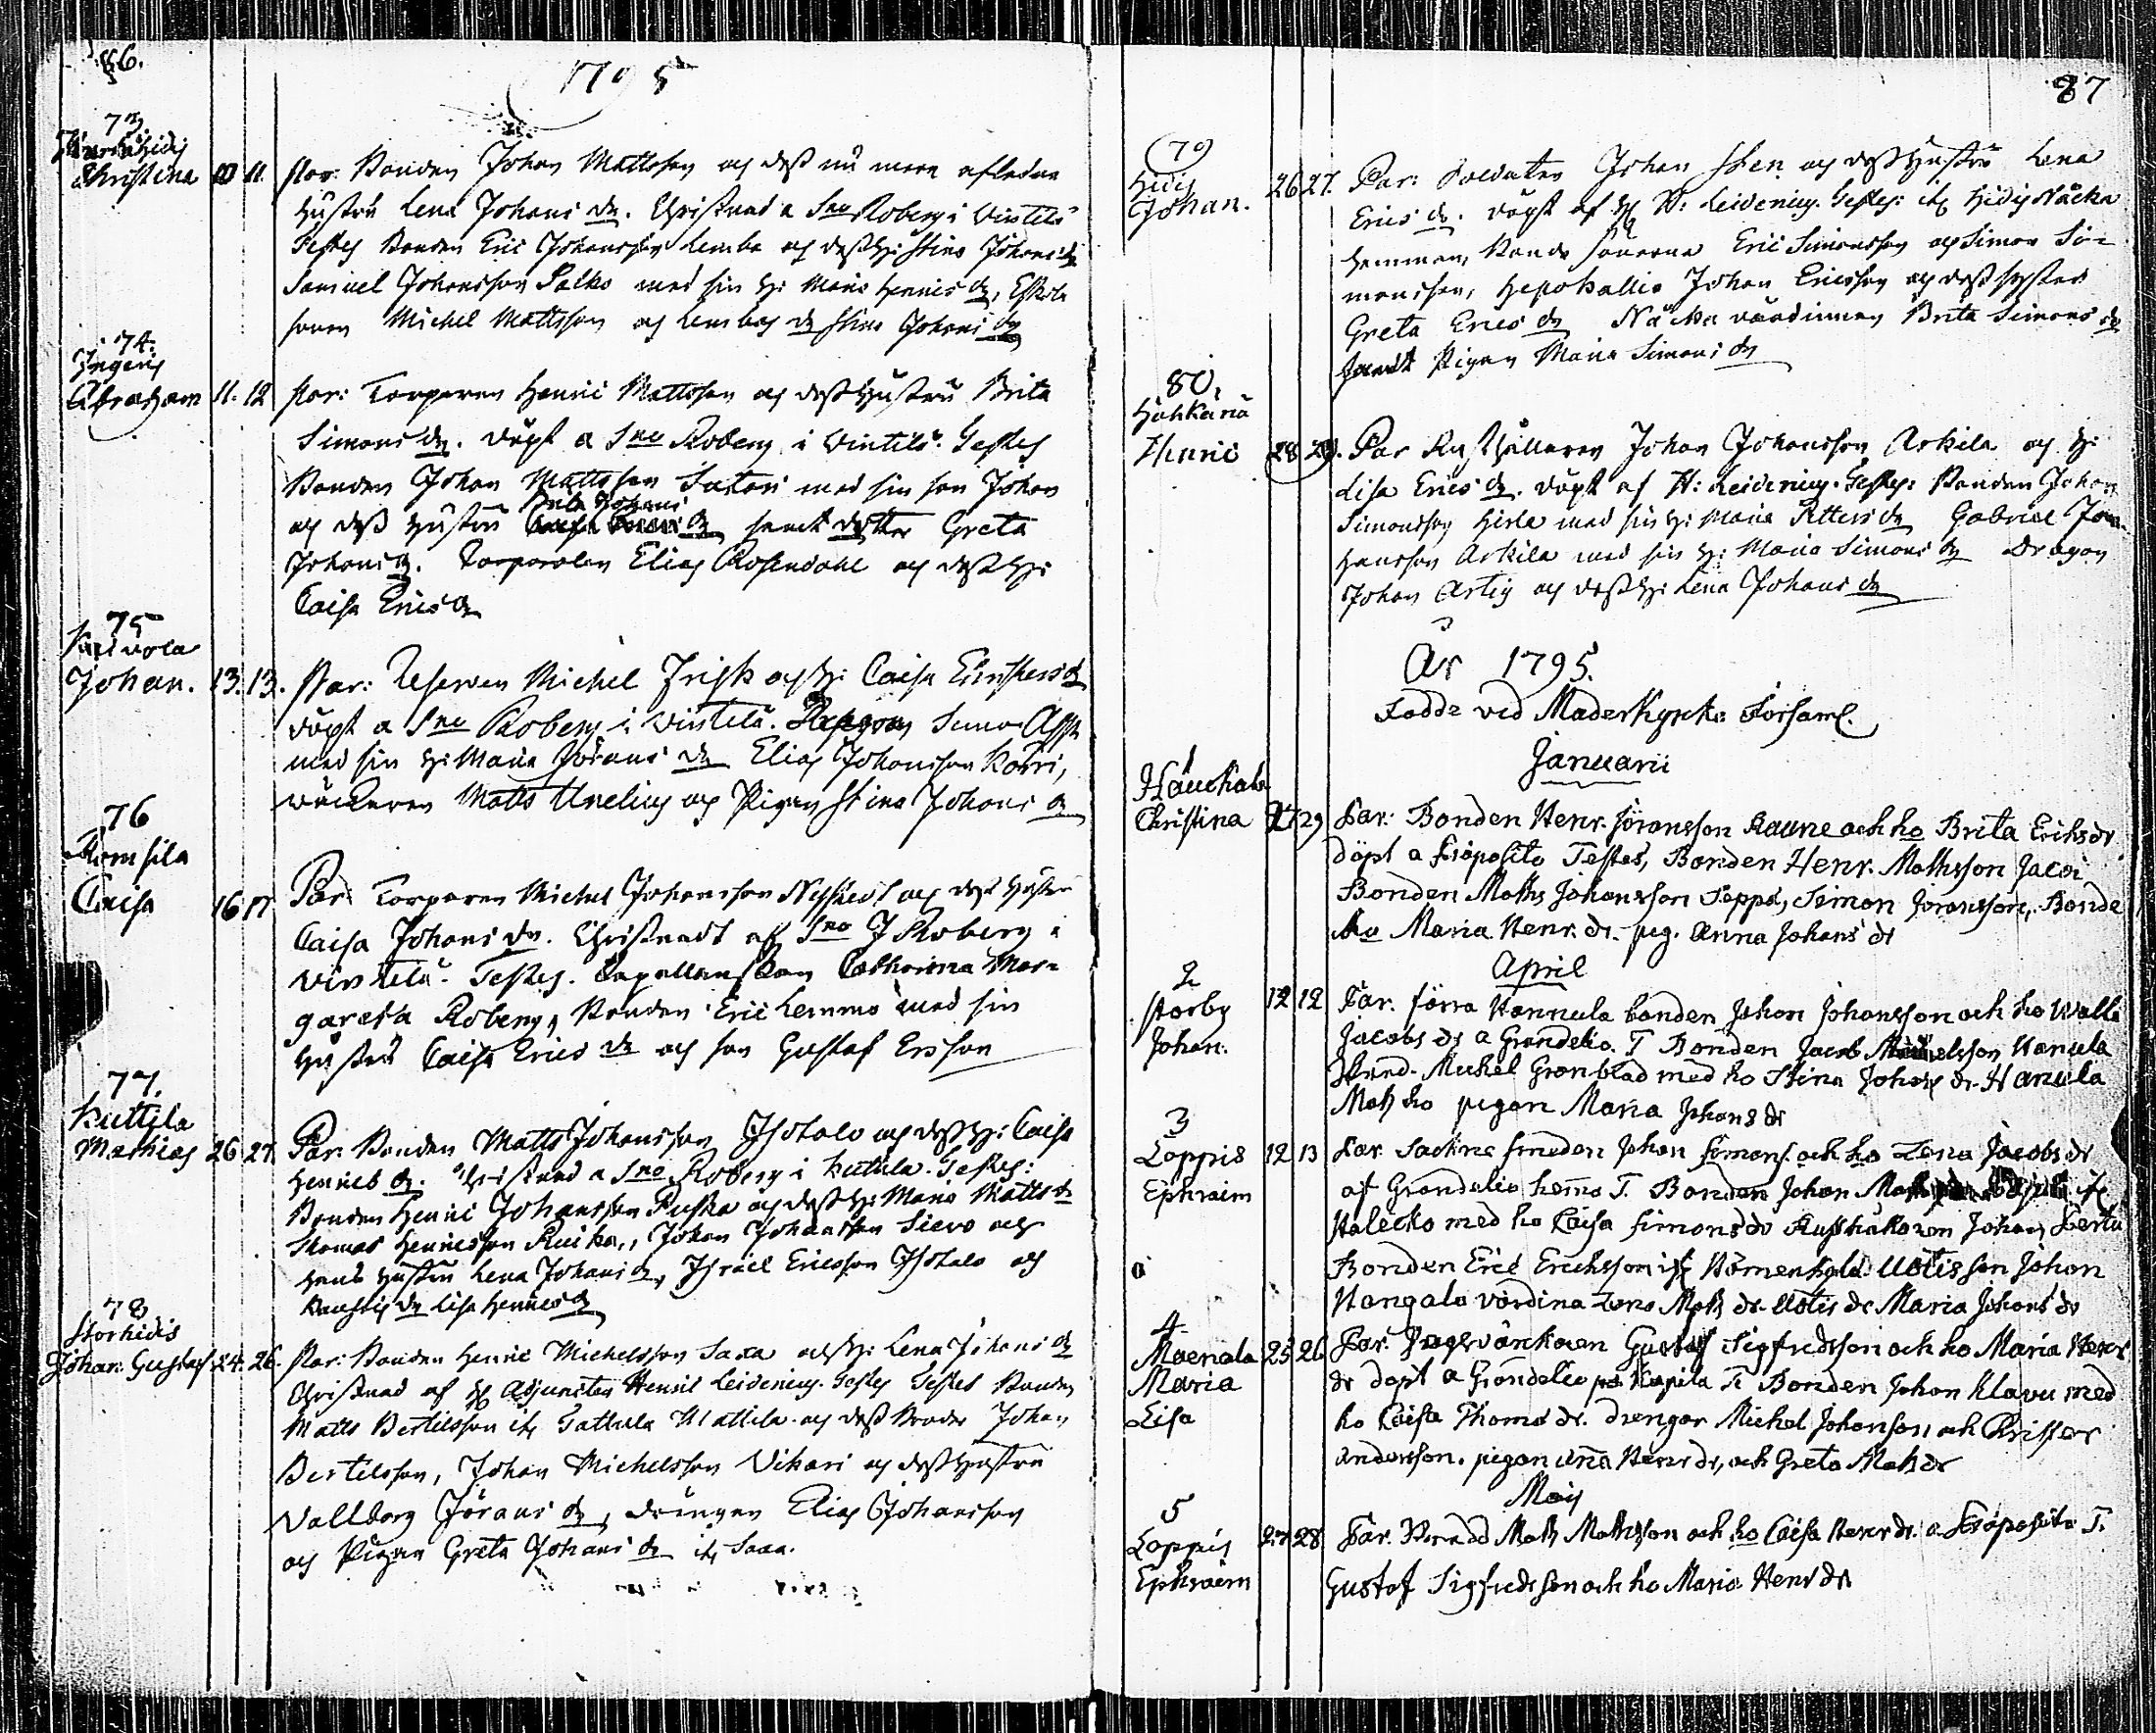 86.
1795
73
Christina 10 11. Par: Bonden Johan Mattsson och dess nu mera afledne
hustru Lena Johans dr. Christnad a Sno Roberg i Vintelä
Testes Bonden Eric Johansson Lembo och dess h: Stina Johans dr
Samuel Johansson Salko med sin h: Maria Henrics dr,
sonen Michel Mattsson och Lembos dr Stina Johans dr
74.
Ingeris
Abraham 11. 12 Par: Torparen Henric Mattsson och dess hustru Brita
Simons dr. döpt a Sno Roberg i Vintelä. Testes
Bonden Johan Mattsson Sutari med sin son Johan
Brita Johans
och dess hustru dr samt dotter Greta
Johans dr. Corporalen Elias Rosendahl och dess h:
Caisa Erics dr
75
Johan. 13. 13. Par: Reserven Michel Frisk och h: Caisa Christers dr
döpt a Sno Roberg i Vintelä. Simon
med sin h: Maria Jörans dr Elias Johansson Korri,
Matts Unelius och Pigan Stina Johans dr
76
Romsila
Caisa 16 17 Par: Torparen Michel Johansson och dess hustru
Caisa Johans dr. Christnadt af Sno J Roberg i
Vintelä. Testes. Capellanskan Catharina Mar=
gareta Roberg, Bonden Eric Lemmo med sin
hustru Caisa Erics dr och son Gustaf Ersson
77.
Kuttila
Mathias 26 27. Par: Bonden Matts Johansson Isotalo och dess h: Caisa
Henrics dr. Christnad a Sno Roberg i Kutila. Testes:
Bonden Henric Johansson Puska och dess h: Maria Matts dr
Thomas Henricsson Ruika, Johan Johansson Sievo och
hans hustru Lena Johans dr, Israel Ericsson Isotalo och
dr Lisa Henrics dr
78
Storhidis
Johan Gustaf 24. 26. Par: Bonden Henric Michelsson Saxa och h: Lena Johans dr
Christnad af H Adjuncten Henric Leidenius. Testes Bonden
Matts Bertilsson ifr Tattula Mattila och dess Broder Johan
Bertilsson, Johan Michelsson Vikari och dess hustru
Vallborg Jörans dr, drängen Elias Johansson
och Pigan Greta Johans dr ifr Saxa.
87
79
Hidis
Johan. 26 27. Par: Soldaten Johan Sten och dess hustru Lena
Erics dr. döpt af H H: Leidenius. Testes: ifr Hidis Näcka
hemman, Bonde sönerna Eric Simonsson och Simon Si=
monsson, Johan Ericsson och dess syster
Greta Erics dr Näcka värdinnan Brita Simons dr
samt Pigan Maria Simons dr
80.
Hahkana
Henric 28 29. Par Rusthållaren Johan Johansson Arkila och h:
Lisa Erics dr. döpt af H: Leidenius. Testes: Bonden Johan
Simonsson Heikla med sin h: Maria Petters dr Gabriel Jo=
hansson Arkila med sin h: Maria Simons dr Dragon
Johan Artig och dess h: Lena Johans dr
År 1795.
Födde vid Moderkyrko Församl.
Januarii
Christina 27 29 Par: Bonden Henr. Jöransson Raune och ho Brita Eriks dr
döpt a Præposito Testes, Bonden Henr. Mathsson Jacoi
Bonden Maths Johansson Seppä, Simon Jöransson, Bonde
ho Maria Henr. dr. pig. Anna Johans dr
April
2
Storby
Johan. 12 12 Par. förra Hannula bonden Johan Johansson och ho Walb
Jacobs dr a Grondelio. T Bonden Jacob Hanula
Michel Grönblad med ho Stina Johans dr Hanula
Mats ho pigan Maria Johans dr
3
Loppis
Ephraim 12 13 Par. Sockne smeden Johan Simons. och ho Lena Jacobs dr
af Grondelio hemo T. Bonden Johan
Halecko med ho Caisa Simons dr Rusthåkaren Johan Pertu
Bonden Eric Erichsson ifr Uotis son Johan
Hangalo värdina Lena Mats dr Uotis dr Maria Johans dr
4
Maenala
Maria
Lisa 25 26 Par. Gustaf Sigfredsson och ho Maria Henr
dr döpt a Grondelio Kapila T Bonden Johan Klavu med
ho Caisa Thoms dr. drengar Michel Johansson och Krister
Andersson. pigan Ana Henr dr, och Greta Mats dr
Maij
5
Loppis
Ephraim 27 28 Par. Mats Mathsson och ho Caisa Henr dr a Præposito T.
Gustaf Sigfredsson och ho Maria Henr dr